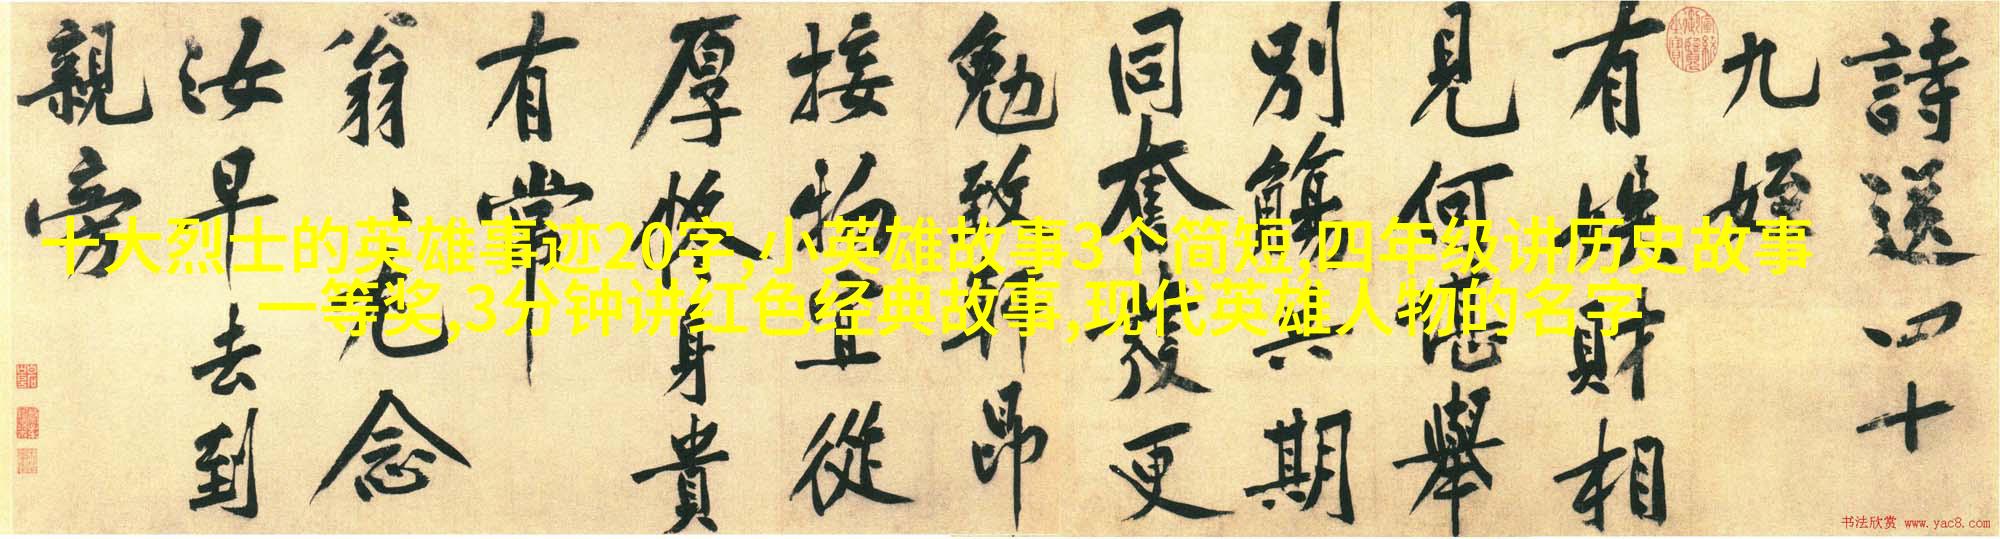 詩送四十
九姪
有財相
見何堪舉
別觴與期
同奮發更
勉致軒昂
接物宜從
厚修身貴
有常
翁〻尤念
汝早去到
親旁
十大烈士的英雄事迹20字,小英雄故事3个简短,四年级讲历史故事
一等奖,3分钟讲红色经典故事,现代英雄人物的名字
书法欣赏 www.yac8.com